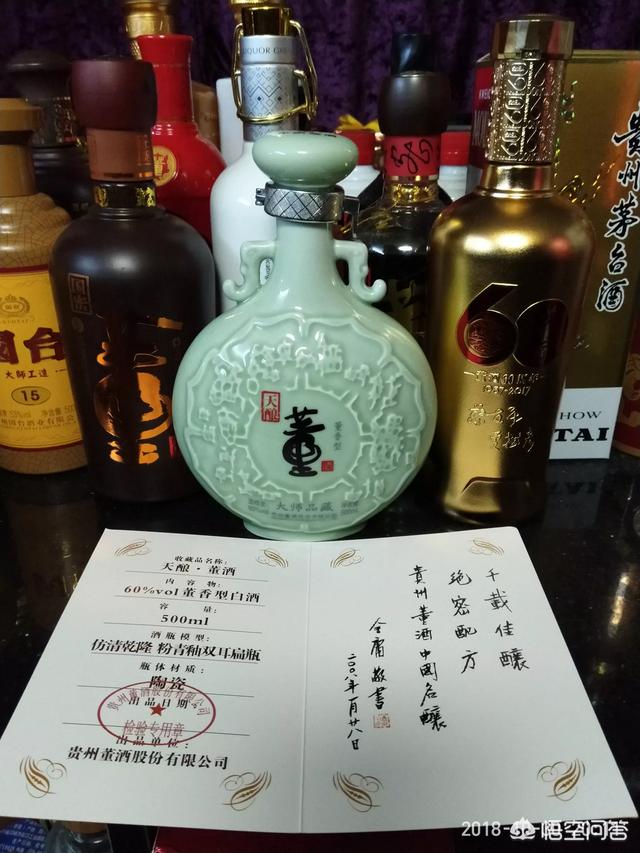 LIQUOR
贵州茅台酒
国台
大师工造
15
国密
董
60
1957-2017
HOW
TAI
天酿
董
董香型
大师品藏
500ml
收藏品名称:
天酿·董酒
内容物:
60%vol董香型白酒
容量:
500ml
酒瓶模型:
仿清乾隆 粉青釉双耳扁瓶
瓶体材质:
陶瓷
出品日期:
出品单位:
贵州董酒股份有限公司
贵州董酒股份有限公司
检验专用章
千载佳釀
绝密配方
貴州董酒中國名釀
金庸敬書
二〇〇八年一月廿八日
2018-
悟空问答